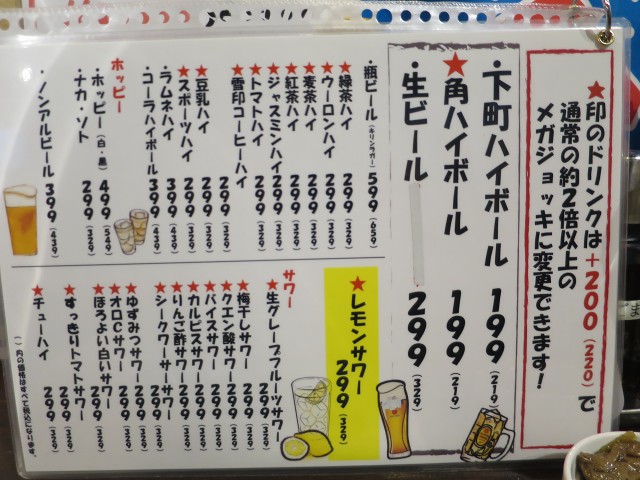 ★印のドリンクは＋200(220)で
通常の約2倍以上の
メガジョッキに変更できます！
・下町ハイボール 199(219)
★角ハイボール 199(219)
・生ビール 299(329)
・瓶ビール(キリンラガー) 599(659)
★緑茶ハイ 299(329)
★ウーロンハイ 299(329)
★麦茶ハイ 299(329)
★紅茶ハイ 299(329)
★ジャスミンハイ 299(329)
★トマトハイ 299(329)
★雪印コーヒーハイ
299(329)
★豆乳ハイ 299(329)
★スポーツハイ 299(329)
・ラムネハイ 399(439)
・コーラハイボール 399(439)
ホッピー
・ホッピー(白・黒) 499(549)
・ナカ・ソト 299(329)
・ノンアルビール 399(439)
★レモンサワー 299(329)
サワー
★生グレープフルーツサワー
299(329)
★梅干しサワー 299(329)
★クエン酸サワー 299(329)
★バイスサワー 299(329)
★カルピスサワー 299(329)
★りんご酢サワー 299(329)
★シークワーサーサワー
299(329)
★ゆずみつサワー 299(329)
★オロCサワー 299(329)
★ほろよい白いサワー 299(329)
★すっきりトマトサワー
299(329)
★チューハイ 299(329)
( )内の価格はすべて税込価格になります。